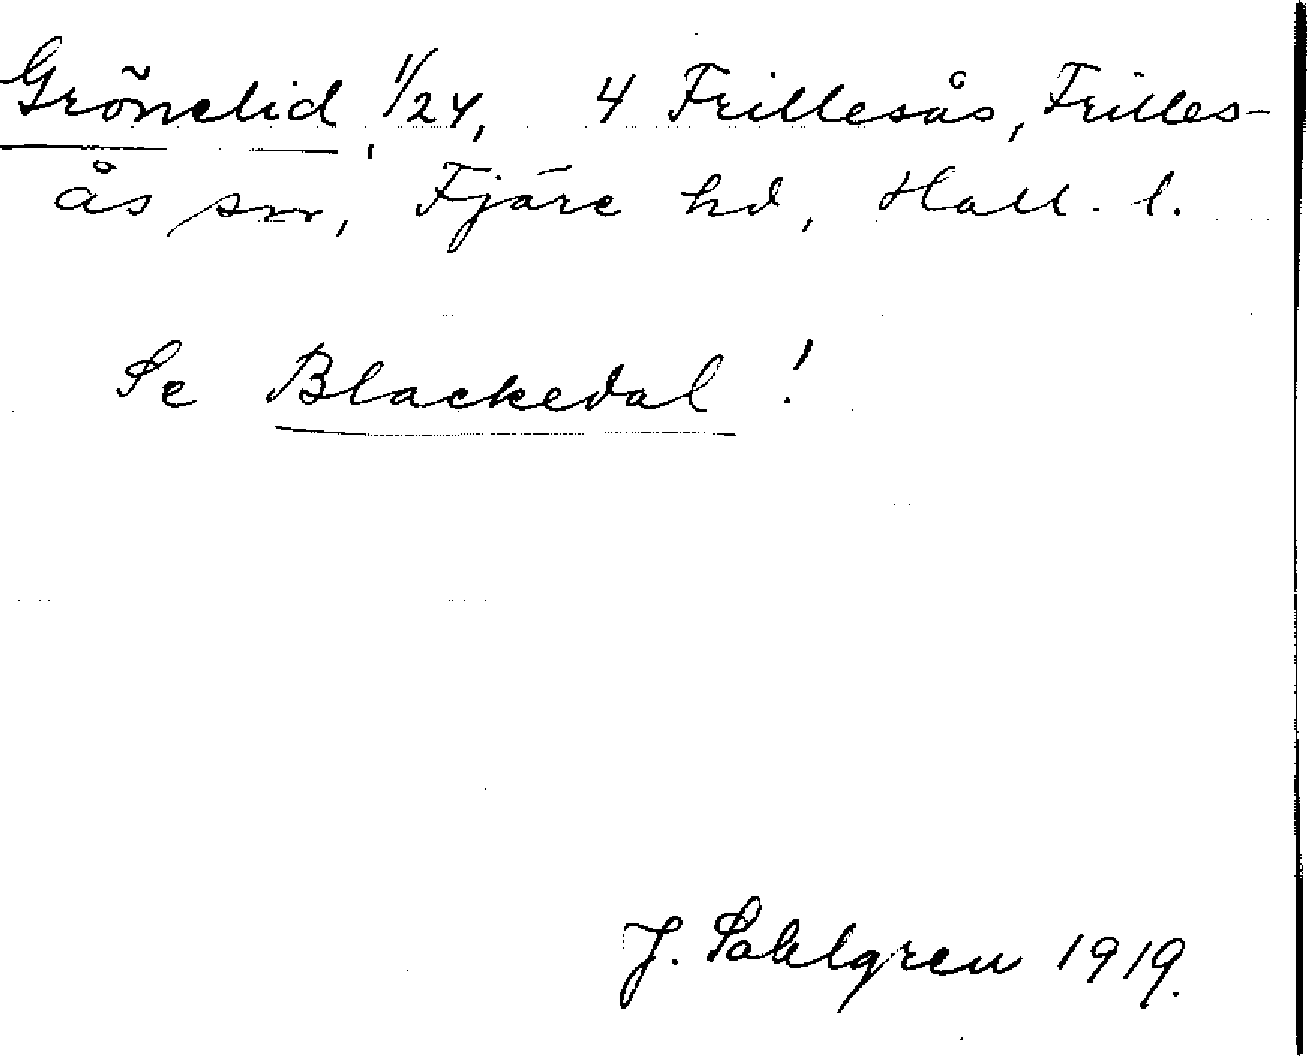 Grönelid, 1/24, 4 Frillesås, Frilles-
ås sn, Fjäre hd, Hall. l.
Se Blackedal!
J. Sahlgren 1919.